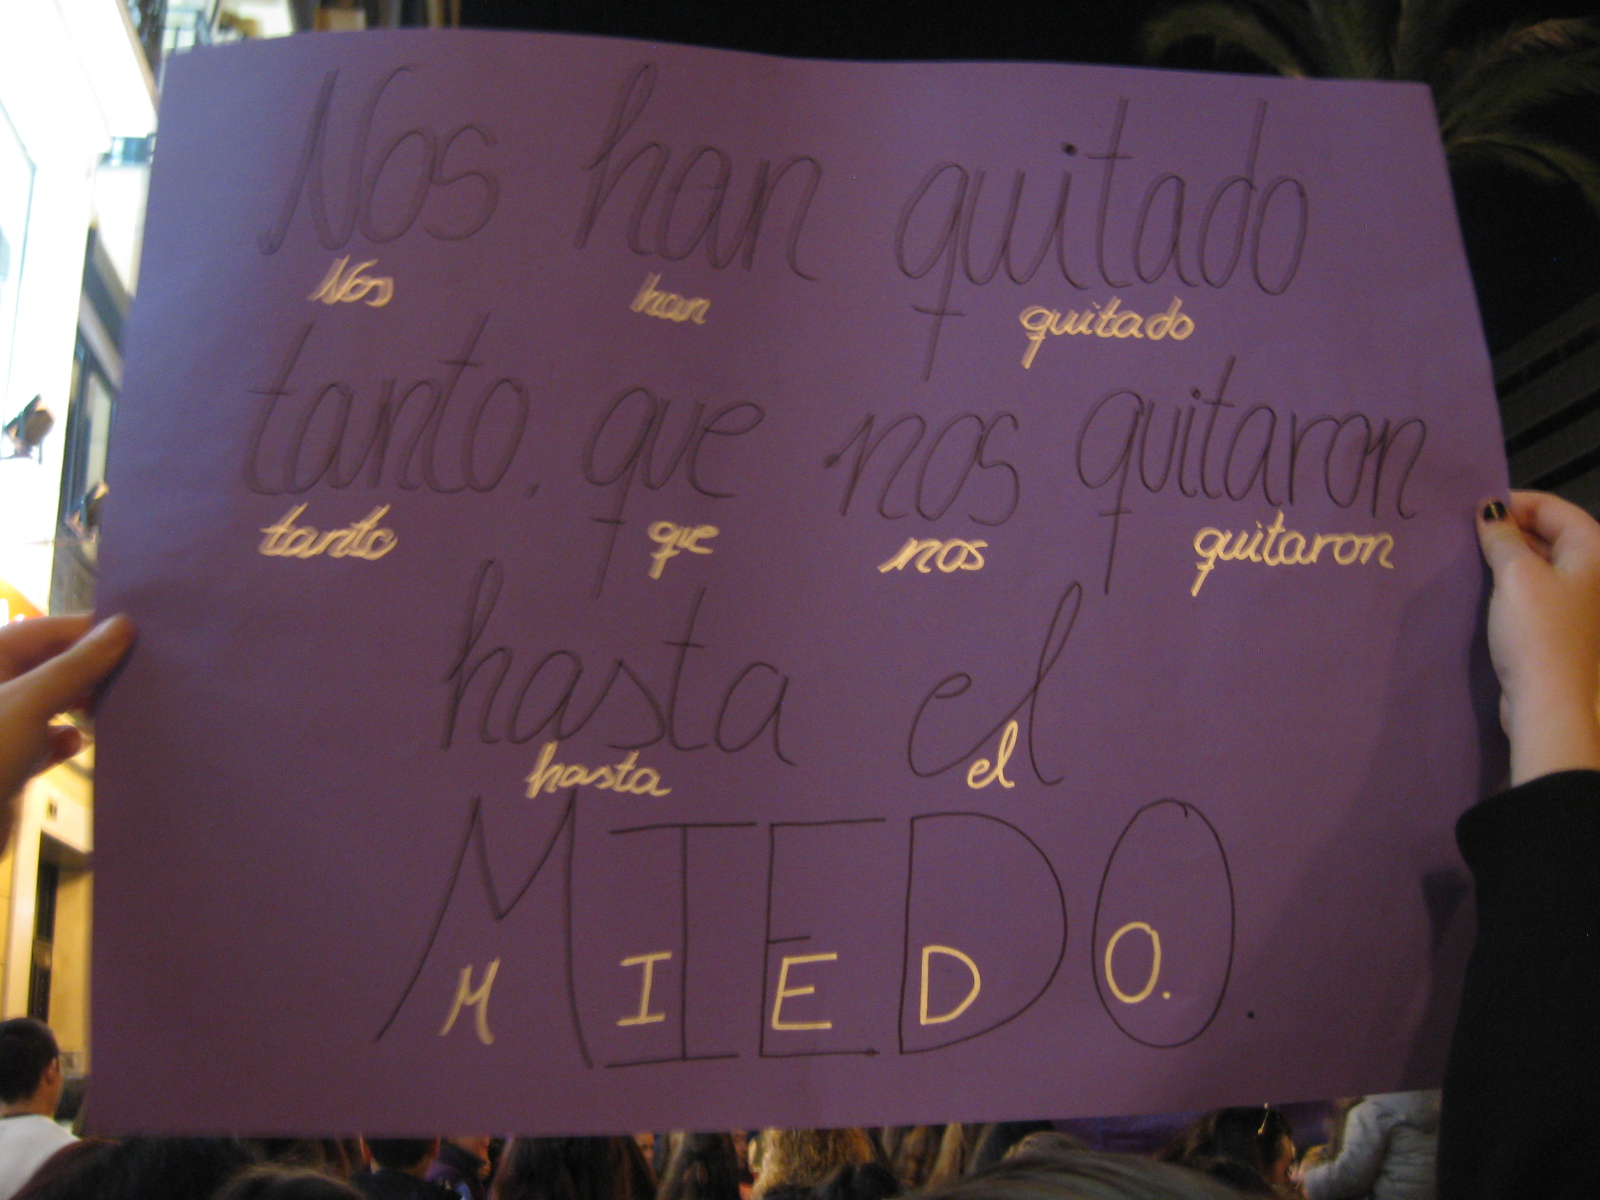 Nos han quitado
Nos han quitado
tanto. que nos quitaron
tanto que nos quitaron
hasta el
hasta el
MIEDO.
MIEDO.